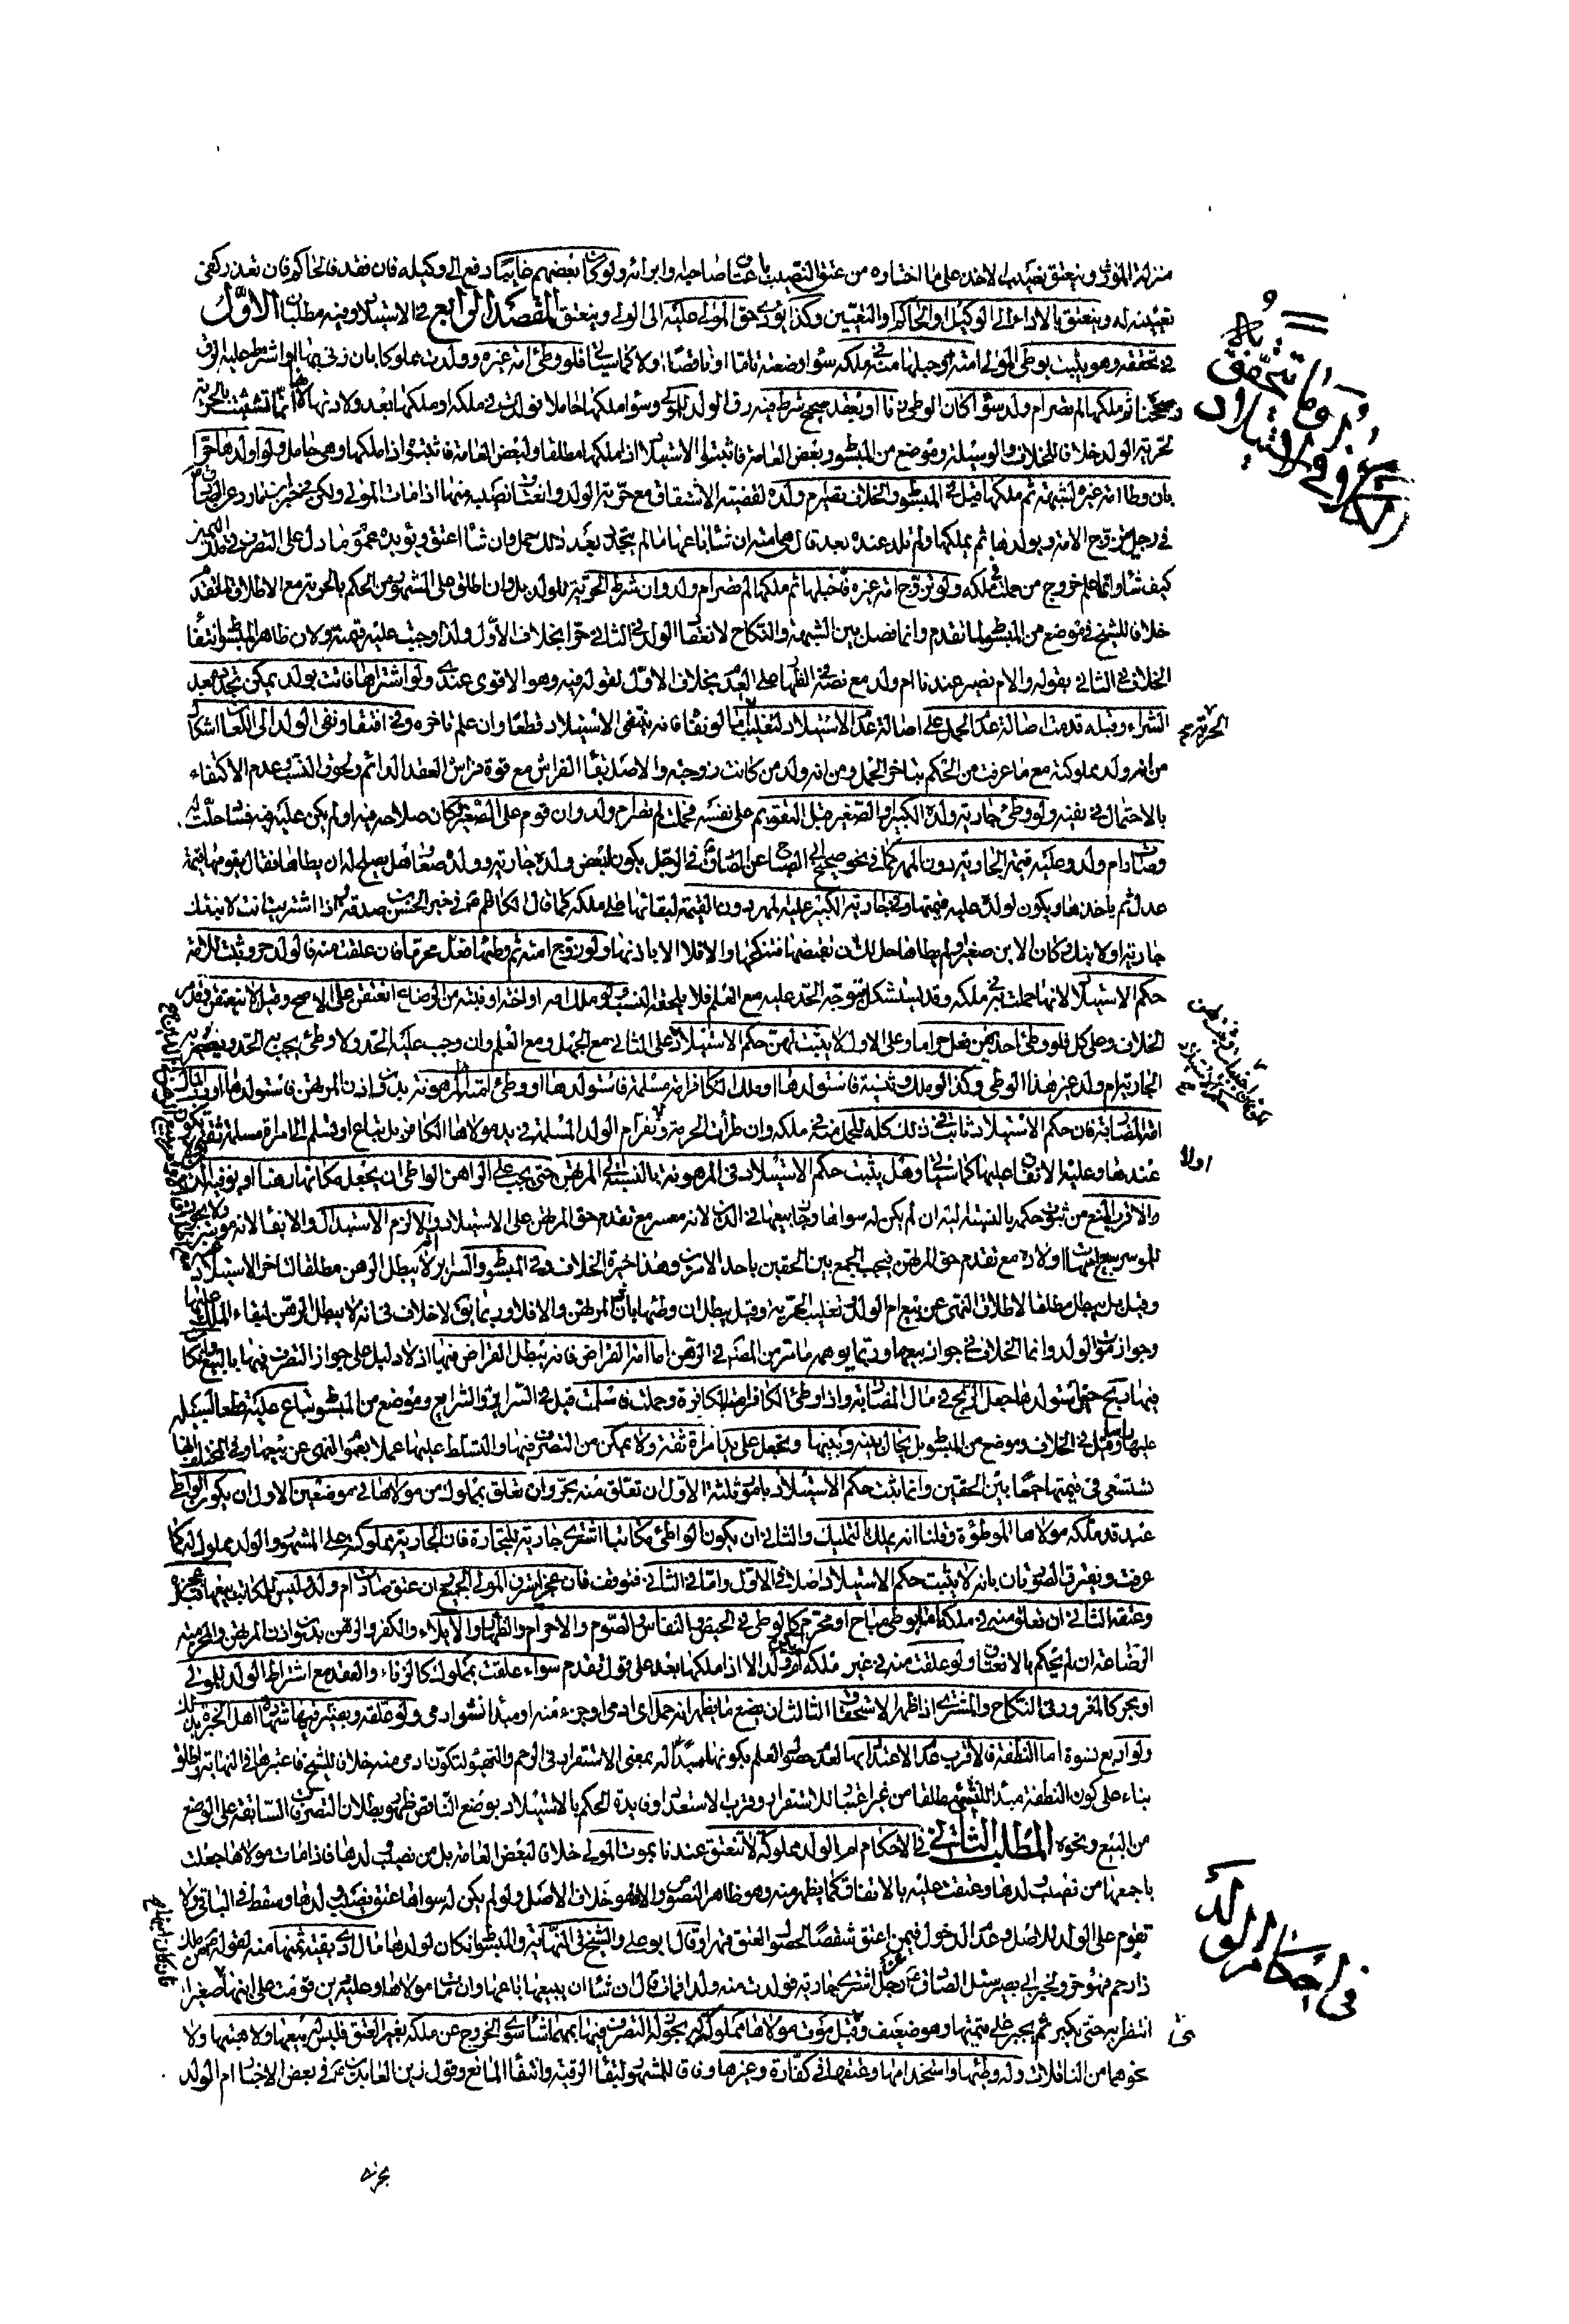 منزلة المولى وينعتق نصيب الاخذ على ما اختاره من عتق النصيب باعتاق صاحبه وابرائه ولو كان بعضهم غايبا دفع الى وكيله فان فقد فالحاكم فان تعذر كفى
تعيينه له وينعتق بالاداء الى الوكيل او الحاكم او التعيين وكذا يؤدى حق المولى عليه الى الولى وينعتق المقصد الرابع في الاستيلاد وفيه مطلبان الاول
في تحققه وهو يثبت بوطى المولى امته وحبلها منه في ملكه سواء وضعته تاما او ناقصا اولا كما سياتى فلو وطئ امة غيره وولدت مملوكا بان زنى بها او اشترط عليه الرق
وصححناه ثم ملكها لم تصر ام ولد سواء كان الوطى زنا او بعقد صحيح شرط فيه رق الولد للمولى وسواء ملكها حاملا فولدت في ملكه او ملكها بعد ولادتها لانها انما تشبثت بالحرية
لحرية الولد خلافا للخلاف والوسيلة وموضع من المبسوط وبعض العامة فاثبتوا الاستيلاد اذا ملكها مطلقا ولبعض العامة فاثبتوه اذا ملكها وهى حامل ولو اولدها حرا
بان وطئ امة غيره لشبهة ثم ملكها قيل في المبسوط والخلاف تصير ام ولده لقضية الاشتقاق مع حرية الولد وانعتاق نصيبه منها اذا مات المولى ولكن في خبر ابن مارد عن الصادق
في رجل يتزوج الامة ويولدها ثم يملكها ولم تلد عنده بعد قال هى امته ان شاء باعها ما لم يحدث بعد ذلك حمل وان شاء اعتق ويؤيده عموم ما دل على التصرف في ملك اليمين
كيف شاء وانما علم خروج من حملت في ملكه ولو تزوج امة غيره فاحبلها ثم ملكها لم تصر ام ولد وان شرط الحرية للولد بل وان اطلق على المشهور من الحكم بالحرية مع الاطلاق لما تقدم
خلافا للشيخ في موضع من المبسوط لما تقدم وانما فصل بين الشبهة والنكاح لانعقاد الولد في الثانى حرا بخلاف الاول ولذا وجبت عليه قيمته ولان ظاهر المبسوط انتفاء
الخلاف في الثانى بقوله والام تصير عندنا ام ولد مع نصه في الظهار على العدم بخلاف الاول لقوله فيه وهو الاقوى عندى ولو اشتراها فاتت بولد يمكن تجدده بعد
الشراء وقبله قدمت اصالة عدم الحمل على اصالة عدم الاستيلاد لتغليب اما لو نفاه فانه ينتفى الاستيلاد قطعا وان علم تاخره وفى افتقار نفى الولد الى اللعان اشكال
من انه ولد مملوكته مع ما عرفت من الحكم بتاخر الحمل ومن انه ولد من كانت زوجته والاصل بقاء الفراش مع قوة فراش العقد الدائم ولحوق النسب وعدم الاكتفاء
بالاحتمال في نفيه ولو وطئ جارية ولده الكبير او الصغير قبل التقويم على نفسه فحملت لم تصر ام ولد وان قوم على الصغير لو كان صلاحه فيه او لم يكن عليه فيه فساد حلت له
وصارت ام ولد وعليه قيمة الجارية دون المهر كما في نحو صحيح ابى الصباح عن الصادق في الرجل يكون لبعض ولده جارية وولده صغار هل يصلح له ان يطاها فقال يقومها قيمة
عدل ثم ياخذها ويكون لولده عليه قيمتها وفى جارية الكبير عليه المهر دون القيمة لبقائها على ملكه كما قال الكاظم في خبر الحسن بن صدقة اذا اشتريت انت لابنتك
جارية او لابنك وكان الابن صغيرا ولم يطاها حل لك ان تقبضها فتنكحها والا فلا الا باذنها ولو زوج امته ثم وطئها فعل محرما فان علقت منه فالولد حر وثبت للامة
حكم الاستيلاد لانها حملت به في ملكه وقد يستشكل بتوجه الحد عليه مع العلم فلا يلحقه النسب ولو ملك امه او اخته او بنته من الرضاع انعتقن على الاصح وقيل لا ينعتقن وتقدم
الخلاف وعلى كل فلو وطئ احداهن فعل حراما وعلى الاول لا يثبت لهن حكم الاستيلاد وعلى الثانى مع الجهل ومع العلم وان وجب عليه الحد ولا وطئ يجب به الحد ويصير به
الجارية ام ولد غير هذا الوطى وكذا لو ملك وثنية فاستولدها او ملك الكافر امة مسلمة فاستولدها او وطئ امته المرهونة بدون اذن المرتهن فاستولدها او وطئ
امة المضاربة فان حكم الاستيلاد ثابت في ذلك كله للحمل منه في ملكه وان طرات الحرمة وتقر ام الولد المسلمة في يد مولاها الكافر بل تباع او تسلم الى امراة مسلمة ثقة تكون
عندها وعليه الانفاق عليها كما سياتى وهل يثبت حكم الاستيلاد في المرهونة بالنسبة الى المرتهن حتى يجب على الراهن الواطى ان يجعل مكانها رهنا او يوفيه الدين
والاقرب المنع من ثبوت حكمه بالنسبة اليه ان لم يكن له سواها وجاز بيعها في الدين لانه معسر مع تقدم حق المرتهن على الاستيلاد والا لزم الاستبدال او الايفاء لانه موسر
للموسر بيع امهات اولاده مع تقدم حق المرتهن فيجب الجمع بين الحقين باحد الامرين وهذا خيرة الخلاف وفى المبسوط والسرائر انه لا يبطل الرهن مطلقا لتاخر الاستيلاد
وقيل بل يبطل مطلقا لاطلاق النهى عن بيع ام الولد وتغليب الحرية وقيل يبطل ان وطئها باذن المرتهن والا فلا وربما يق لا خلاف في انه لا يبطل الرهن لبقاء الملك
وجواز موت الولد وانما الخلاف في جواز بيعها وربما يوهمه ما مر من المص في الرهن اما امة القراض فانه يبطل القراض فيها اذ لا دليل على جواز التصرف فيها بالبيع وان كان
فيها ربح حين استولدها جعل الربح في مال المضاربة واذا وطئ الكافر امته الكافرة وحملت منه فاسلمت قيل في السرائر والشرايع وموضع من المبسوط تباع عليه قطعا لسبيله
عليها وقيل في الخلاف وموضع من المبسوط بل يحال بينه وبينها وتجعل على يد امراة ثقة ولا يمكن من التصرف فيها والتسلط عليها عملا بعموم النهى عن بيعها وفى المختلف انها
تستسعى في قيمتها جمعا بين الحقين وانما يثبت حكم الاستيلاد بامور ثلثة الاول ان تعلق منه بحر وان تعلق بمملوك من مولاها في موضعين الاول ان يكون الواطى
عبدا قد ملكه مولاه الموطوءة وقلنا انه يملك بالتمليك والثانى ان يكون الواطى مكاتبا اشترى جارية للتجارة فان الجارية مملوكته على المشهور والولد مملوك له كما
عرفت ويفترق الصورتان بانه لا يثبت حكم الاستيلاد اصلا في الاول واما في الثانى فتوقف فان عجز استرق المولى الجميع وان عتق صارت ام ولد وليس للمكاتب بيعها قبل عجزه
وعتقه الثانى ان تعلق منه في ملكه اما بوطى مباح او محرم كالوطى في الحيض والنفاس والصوم والاحرام والظهار والايلاء والكفر والرهن بدون اذن المرتهن والمحرمة
الرضاعية ان لم يحكم بالانعتاق ولو علقت منه في غير ملكه لم تصر ام ولد الا اذا ملكها بعد على قول تقدم سواء علقت بمملوك كالزناء والعقد مع اشتراط الولد للمولى
او بحر كالمغرور في النكاح والمشترى اذا ظهر الاستحقاق الثالث ان يضع ما يظهر انه حمل اى ادمى او جزء منه او مبدا نشو ادمى ولو علقة ويعتبر فيها شهادة اهل الخبرة بذلك
ولو اربع نسوة اما النطفة فالاقرب عدم الاعتداد بها لعدم حصول العلم بكونها مبدا له بمعنى الاستقرار في الرحم والتهيؤ لتكون ادمى منه خلافا للشيخ فاعتبرها في النهاية واطلق
بناء على كون النطفة مبدا للنشو مطلقا من غير اعتبار للاستقرار وقرب الاستعداد وفايدة الحكم بالاستيلاد بوضع الناقص ظهور بطلان التصرفات السابقة على الوضع
من البيع ونحوه المطلب الثانى في الاحكام ام الولد مملوكة لا تنعتق عندنا بموت المولى خلافا لبعض العامة بل من نصيب ولدها فاذا مات مولاها جعلت
باجمعها من نصيب ولدها وعتقت عليه بالاتفاق كما يظهر منه وهو ظاهر النصوص والا فهو خلاف الاصل ولو لم يكن له سواها عتق نصيب ولدها وسقط في الباقى ولا
تقوم على الولد للاصل وعدم الدخول فيمن اعتق شقصا لحصول العتق قهرا وقال ابو على والشيخ في النهاية والمبسوط ان كان لولدها مال ادى بقية ثمنها منه لقوله من ملك
ذا رحم فهو حر ولخبر ابى بصير سئل الصادق عن رجل اشترى جارية فولدت منه ولدا فمات قال ان شاء ان يبيعها باعها وان مات مولاها وعليه دين قومت على ابنها فان كان ابنها صغيرا
انتظر به حتى يكبر ثم يجبر على قيمتها وهو ضعيف وقبل موت مولاها مملوكة له يجوز له التصرف فيها بمهما شاء سوى الخروج عن ملكه بغير العتق فليس له بيعها ولا هبتها ولا
نحوهما من الناقلات وله وطئها واستخدامها وعتقها في كفارة وغيرها وفاقا للمشهور لبقاء الرقية وانتفاء المانع وقول زين العابدين في بعض الاخبار ام الولد
في احكام ام الولد
يجزى